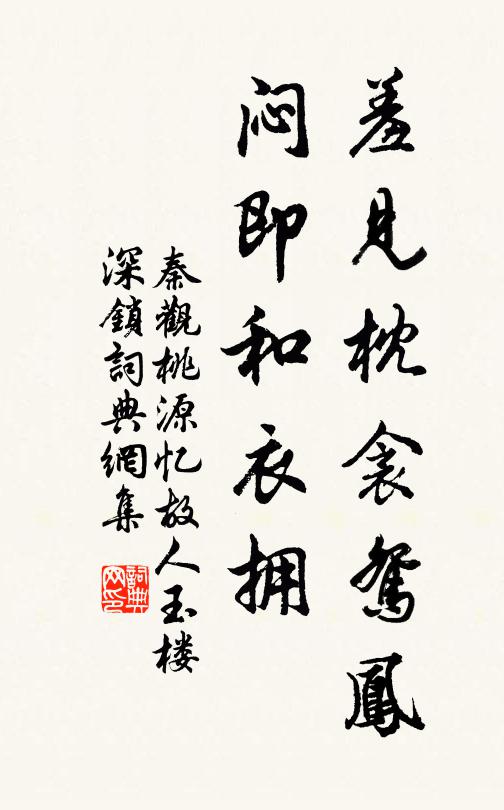 羞見枕衾鴛鳳
闷即和衣拥
秦觀桃源忆故人玉楼
深鎖詞典網集
詞典
网印